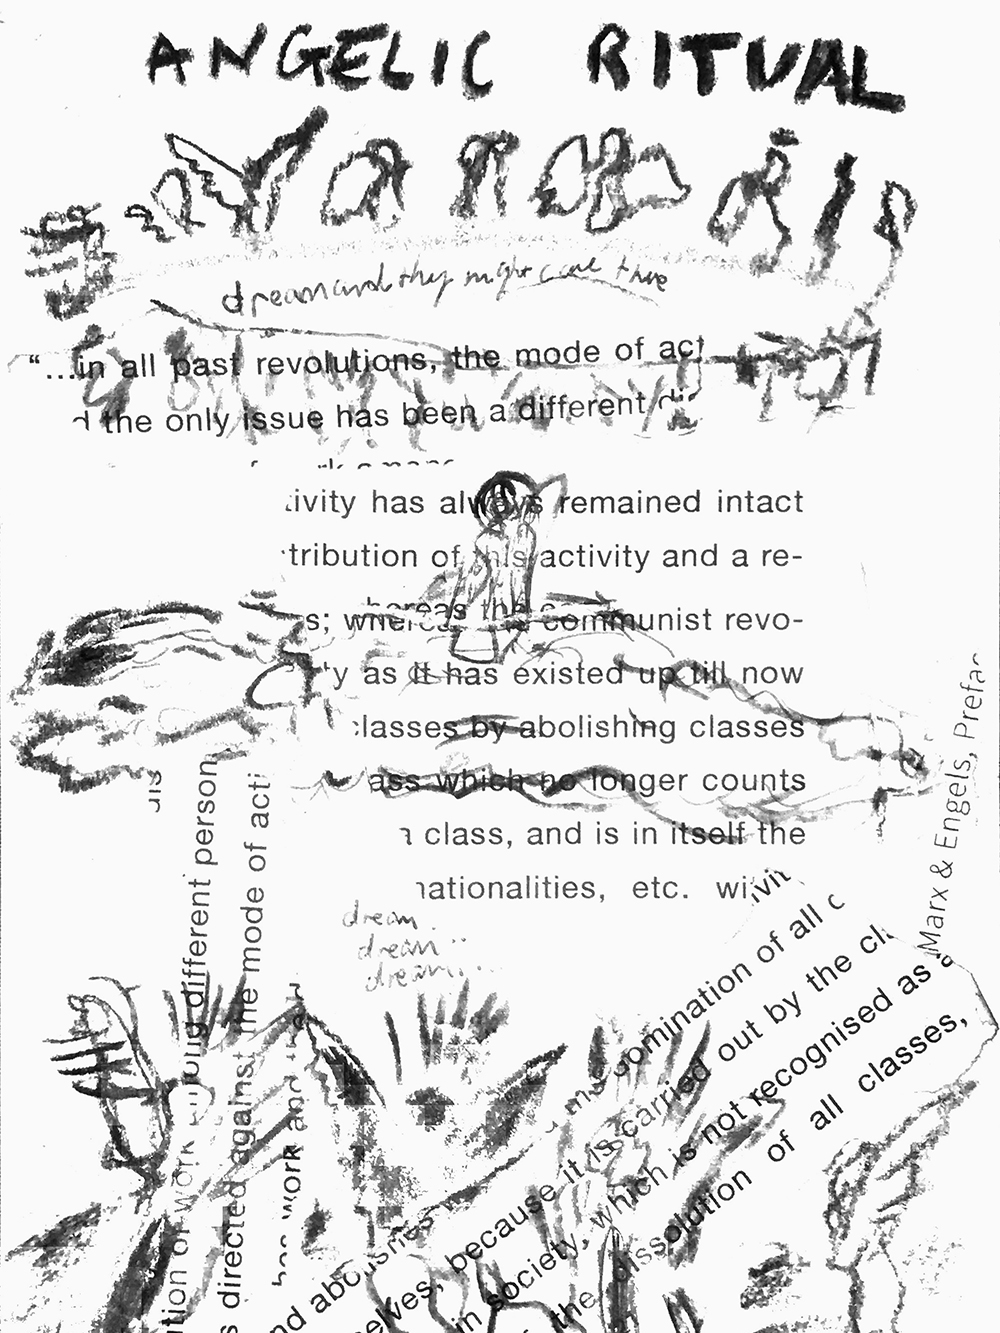 ANGELIC RITUAL
dream and they might come true
“...in all past revolutions, the mode of act
d the only issue has been a different dis
tivity has always remained intact
tribution of this activity and a re-
hereas the c
s; whereas communist revo-
ty as it has existed up till now
classes by abolishing classes
ass which no longer counts
a class, and is in itself the
nationalities, etc. within
dream
dream..
dream....
dis
among different person
ution of work
s directed against the mode of acti
has work and
the domination of all c
and abolishes
selves, because it is carried out by the cl
in society, which is not recognised as a
the dissolution of all classes,
Marx & Engels, Prefac